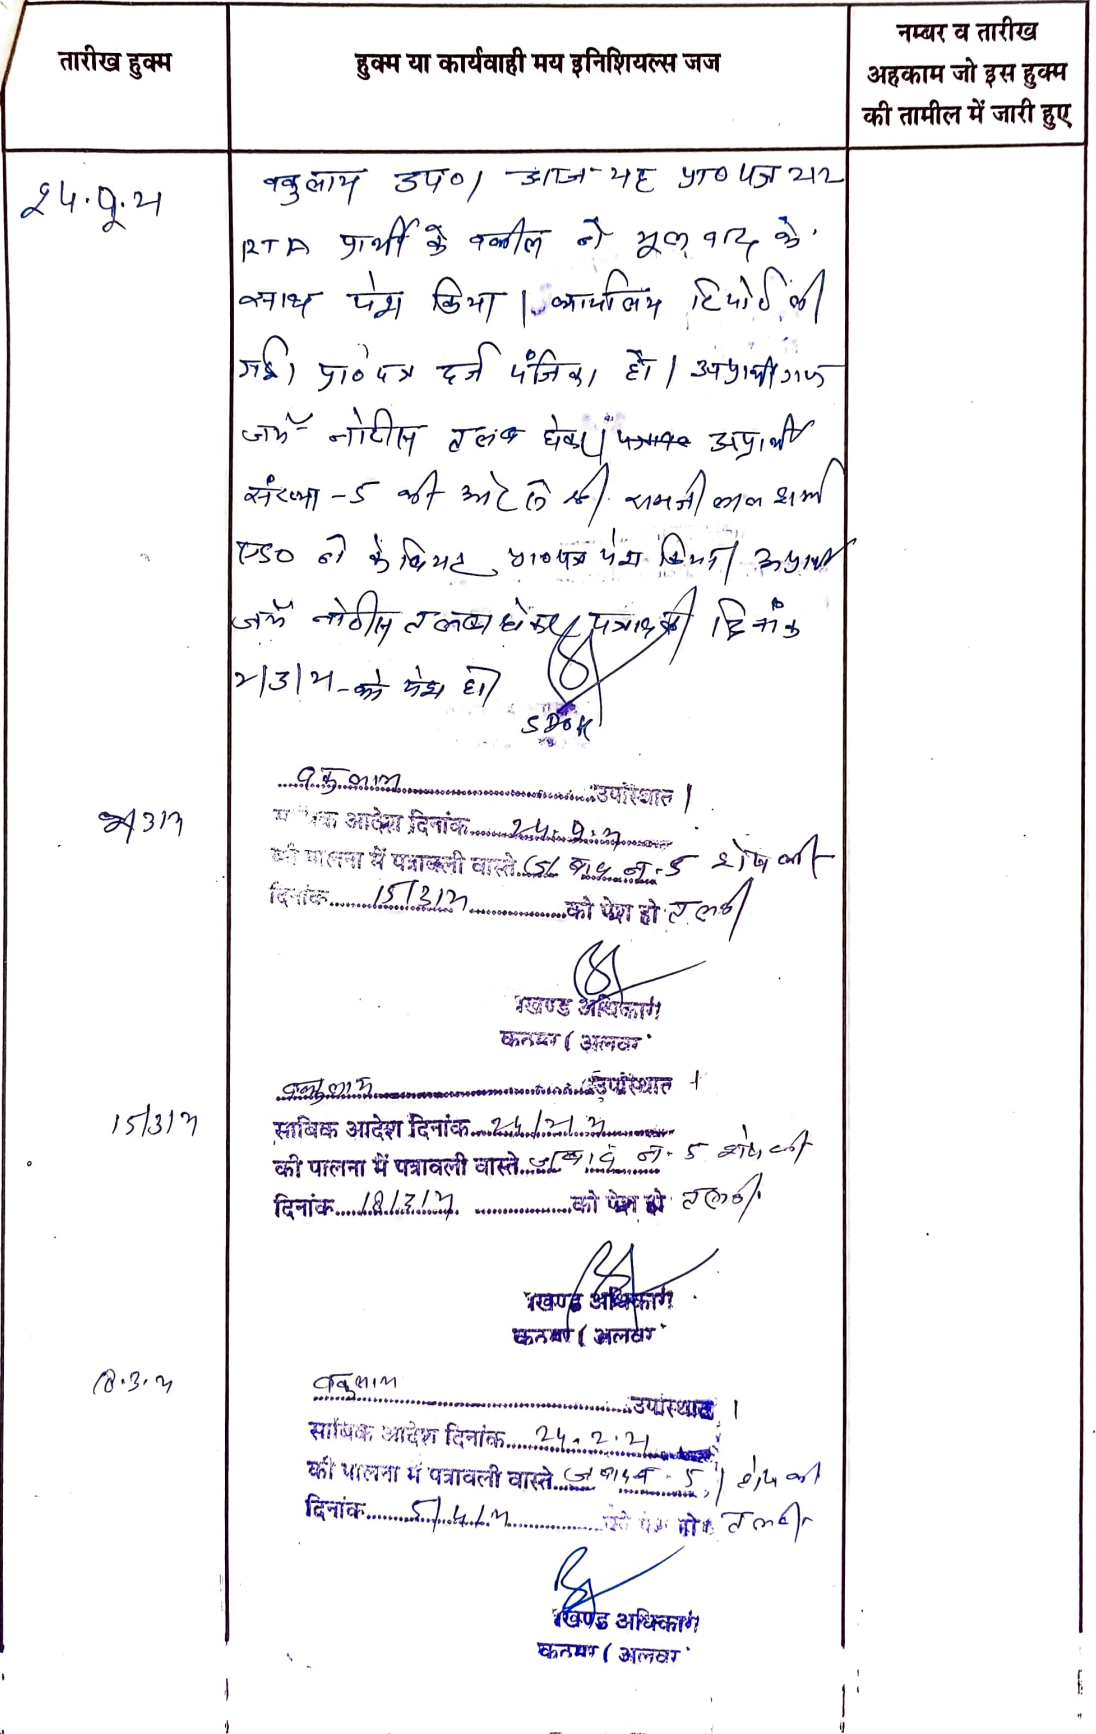 तारीख हुक्म
हुक्म या कार्यवाही मय इनिशियल्स जज
नम्बर व तारीख
अहकाम जो इस हुक्म
की तामील में जारी हुए
24.2.21
वकुलाय उप०। आज यह प्रा० पत्र
RTA प्रार्थी के वकील ने मूल वाद के
साथ पेश किया। कार्यालय रिपोर्ट की
गई। प्रा०पत्र दर्ज पंजिका हो। अप्रार्थीगण
जर्ये नोटिस तलब होवे। अप्रार्थी
संख्या-5 की ओर से श्री रामजीलाल शर्मा
ने केवियट प्रा०पत्र पेश किया। अप्रार्थी
जर्ये नोटिस तलब होकर पत्रावली दिनांक
को पेश हो।
SDOK
वकुलाय उपस्थित।
आदेश दिनांक 24.2.21
की पालना में पत्रावली वास्ते जवाब नं.5 शेष की
दिनांक 15/3/21 को पेश हो तलबी
खण्ड अधिकारी
कठूमर (अलवर
15/3/21
वकुलाय उपस्थित।
साबिक आदेश दिनांक 24/2/21
की पालना में पत्रावली वास्ते जवाब नं.5 शेष की
दिनांक 18/3/21 को पेश हो तलबी
खण्ड अधिकारी
कठूमर (अलवर
18.3.21
वकुलाय उपस्थित।
साबिक आदेश दिनांक 24.2.21
की पालना में पत्रावली वास्ते जवाब नं.5। शेष की
दिनांक 5/4/21 को पेश हो तलबी
खण्ड अधिकारी
कठूमर (अलवर